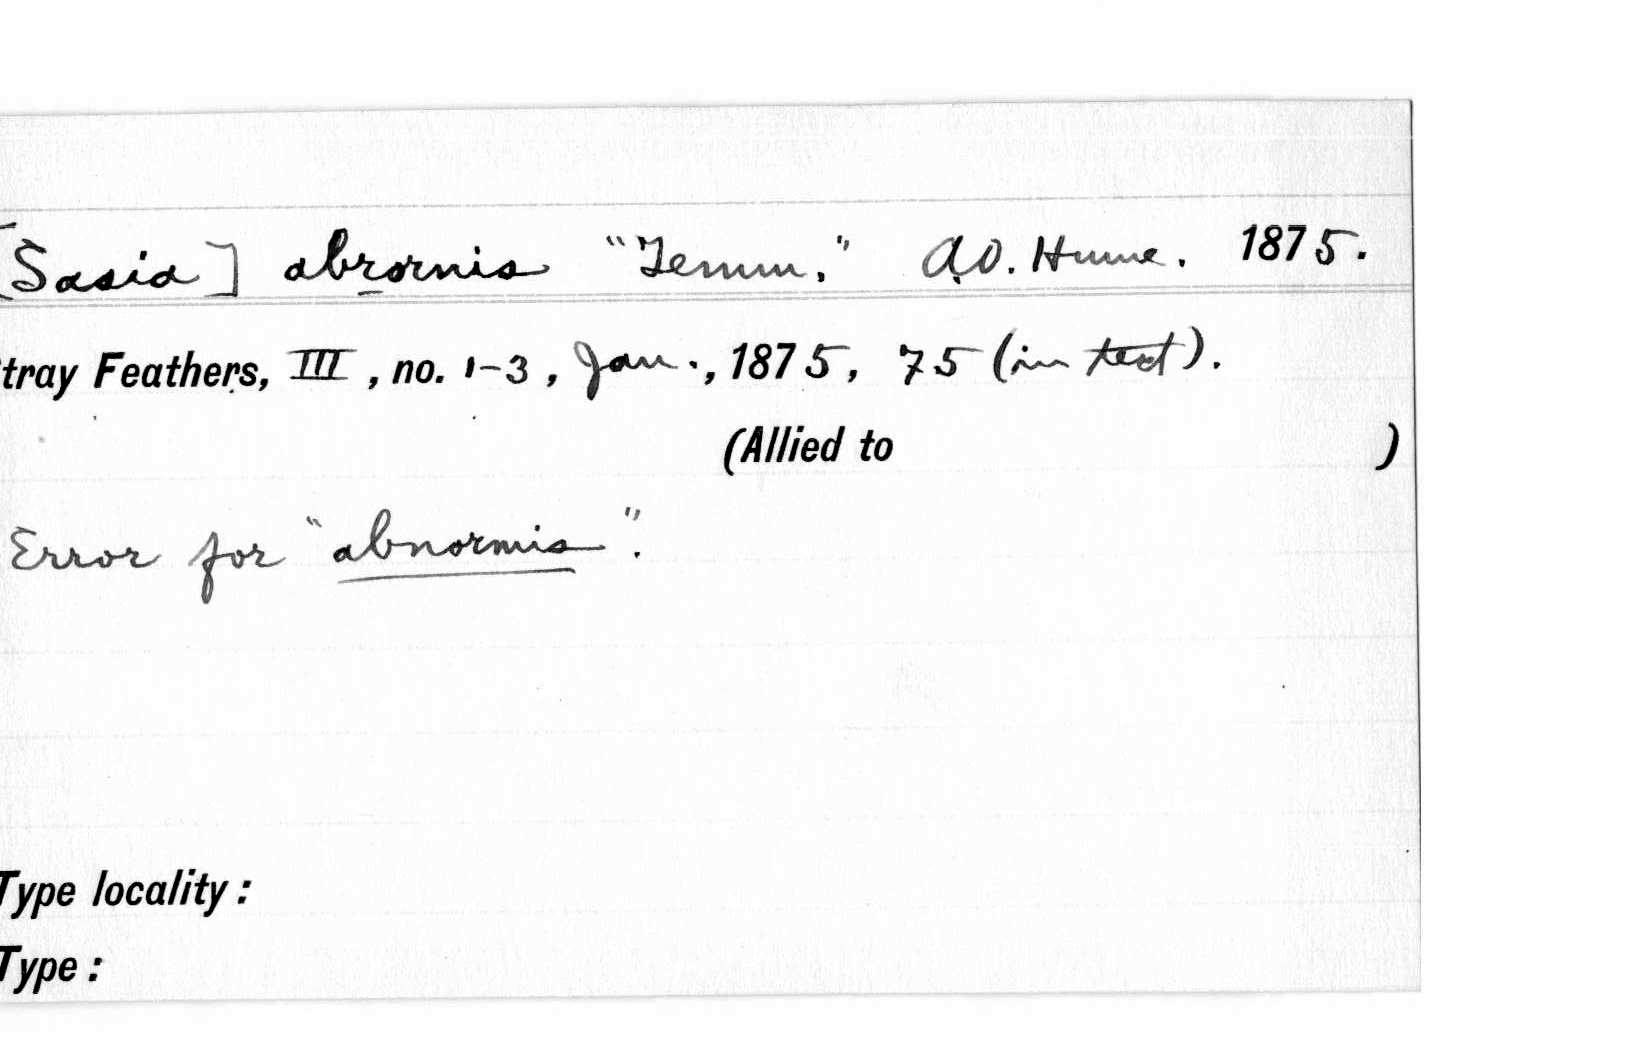 [Sasia] abrornis "Temm." A.O. Hume. 1875.
tray Feathers, III, no. 1-3, Jan., 1875, 75 (in text).
(Allied to )
Error for "abnormis".
Type locality:
Type: